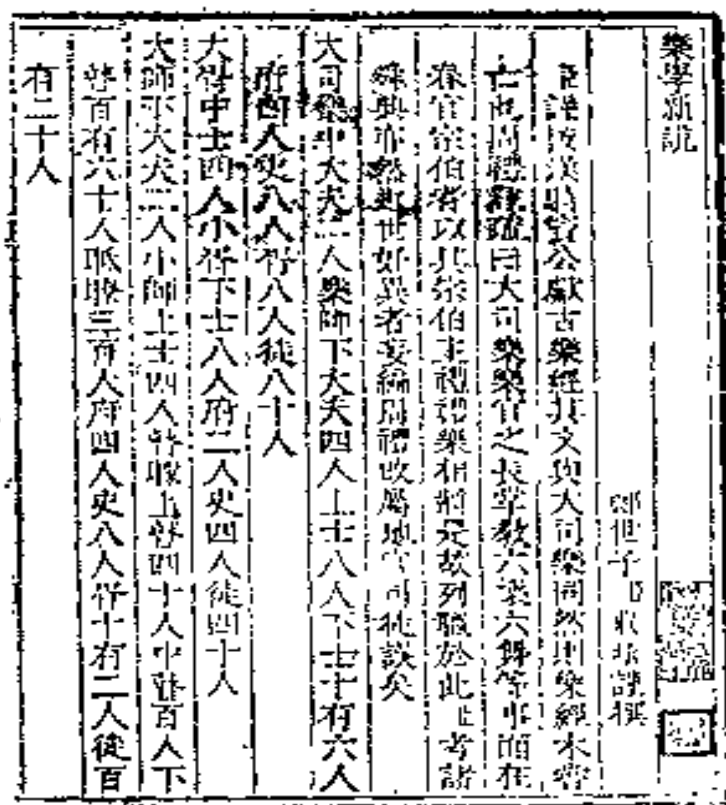 樂學新說
鄭世子臣載堉謹撰
臣謹按漢時竇公獻古樂經其文與大司樂同然則樂經未嘗
亡也周禮註疏曰大司樂樂官之長掌教六樂六舞等事而在
春官宗伯者以其宗伯主禮禮樂相將是故列職於此且考諸
典亦然近世好異者妄編周禮改屬地官司徒誤矣
大司樂中大夫二人樂師下大夫四人上士八人下士十有六人
府四人史八人胥八人徒八十人
大胥中士四人小胥下士八人府二人史四人徒四十人
大師下大夫二人小師上士四人瞽矇上瞽四十人中瞽百人下
瞽百有六十人眡瞭三百人府四人史八人胥十有二人徒百
有二十人